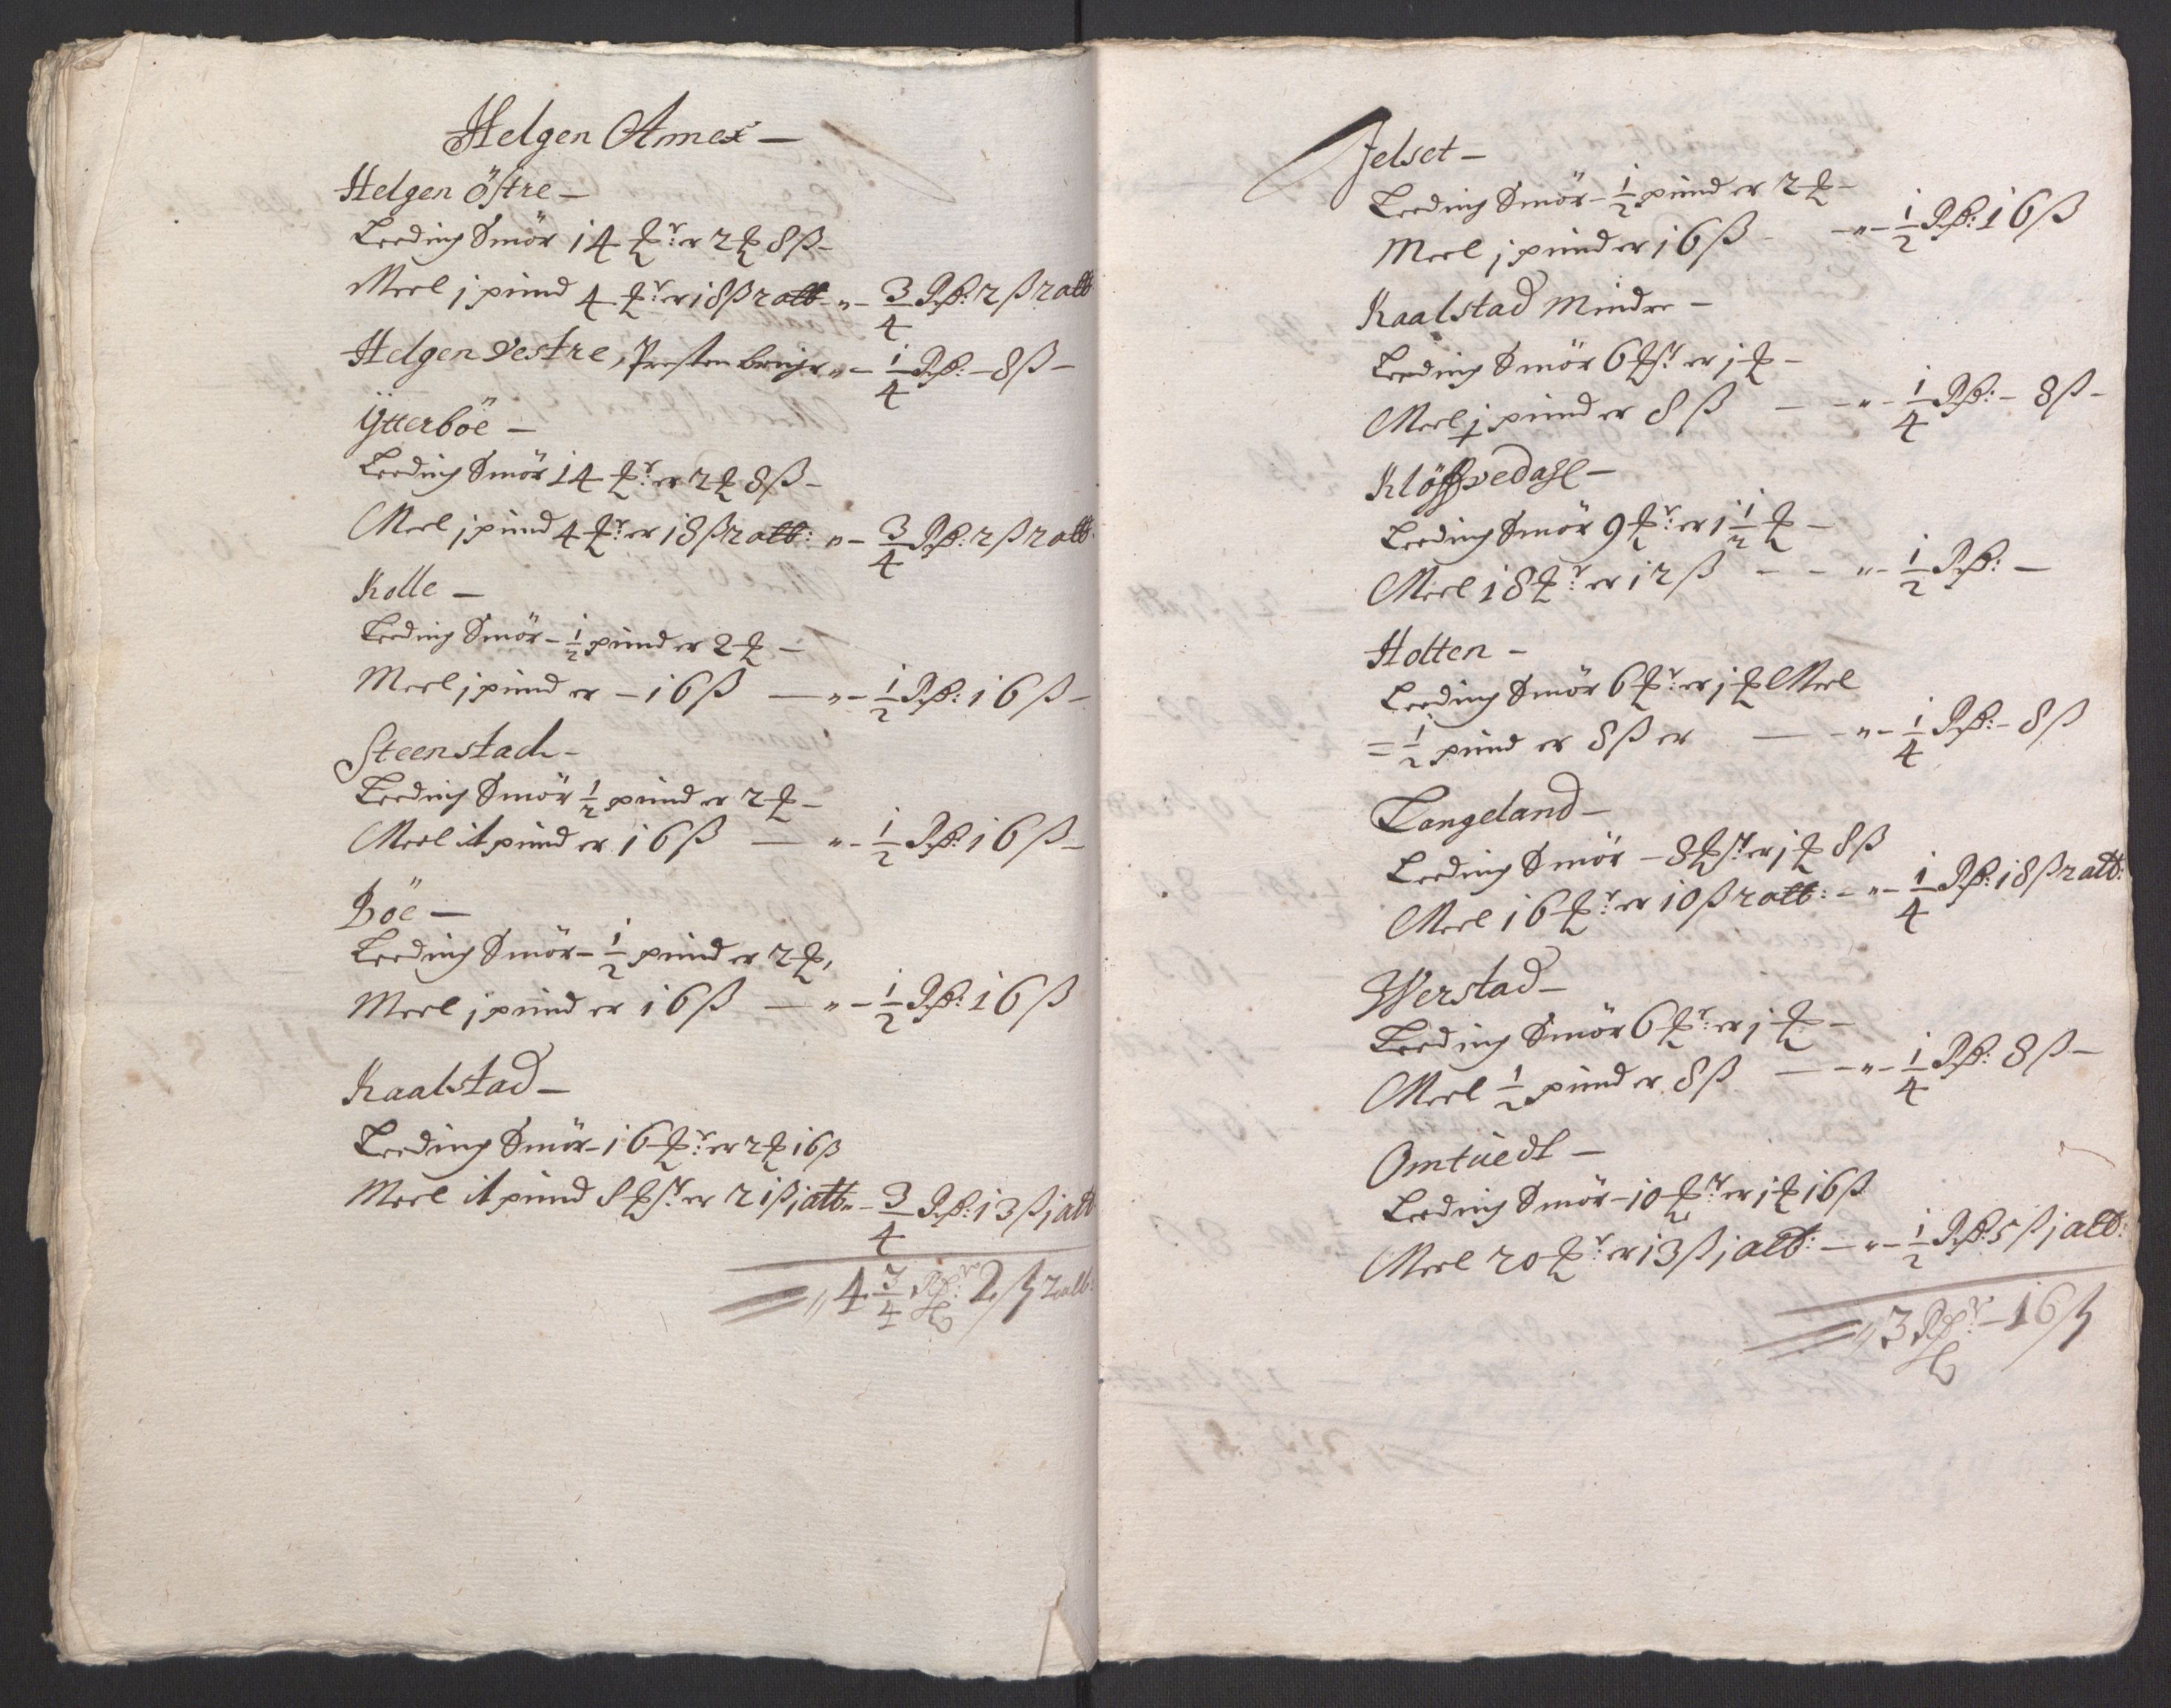 Helgen Annex —
Helgen Östre —
Leeding Smör 14 ℔r: er 2 ℔ 8 ß —
Meel j pund 4 ℔r er 18 ß 2 alb: „ — 3/4 Rß: 2 ß 2 alb
Helgen Vestre, Presten bruger „ — 1/4 Rß: — 8 ß —
Ytterböe —
Leeding Smör 14 ℔r: er 2 ℔ 8 ß —
Meel j pund 4 ℔r: er 18 ß 2 alb: „ — 3/4 Rß: 2 ß 2 alb:
Kolle —
Leeding Smör — 1/2 pund er 2 ℔ —
Meel j pund er — 16 ß — „ — 1/2 Rß: 16 ß —
Steenstad —
Leeding Smör 1/2 pund er 2 ℔ —
Meel it pund er 16 ß — „ — 1/2 Rß: 16 ß —
Böe —
Leeding Smör — 1/2 pund er 2 ℔,
Meel j pund er 16 ß — „ — 1/2 Rß: 16 ß
Kaalstad —
Leeding Smör — 16 ℔r: er 2 ℔ 16 ß
Meel it pund 8 ℔r er 21 ß j alb „ — 3/4 Rß: 13 ß j alb
„ 4 3/4 Rßr: 2 ß 2 alb:
Jelset —
Leeding Smör — 1/2 pund er 2 ℔ —
Meel j pund er 16 ß — „ — 1/2 Rß: 16 ß
Kaalstad Mindre —
Leeding Smör 6 ℔r er j ℔ —
Meel j pund er 8 ß — — „ — 1/4 Rß: — 8 ß —
Klöffvedahl —
Leeding Smör 9 ℔r: er 1 1/2 ℔ —
Meel 18 ℔r: er 12 ß — — „ — 1/2 Rß: —
Holten —
Leeding Smör 6 ℔r: er j ℔ Meel
= 1/2 pund er 8 ß er — — „ — 1/4 Rß: — 8 ß
Langeland —
Leeding Smör — 8 ℔r er j ℔ 8 ß
Meel 16 ℔r: er 10 ß 2 alb: — „ — 1/4 Rß: 18 ß 2 alb:
Werstad —
Leeding Smör 6 ℔r: er j ℔ —
Meel 1/2 pund er 8 ß — — „ — 1/4 Rß: 8 ß —
Omtuedt —
Leeding Smör — 10 ℔r er j ℔ 16 ß
Meel 20 ℔r: er 13 ß j alb: — „ — 1/2 Rß: 5 ß j alb:
„ 3 Rßr: — 16 ß